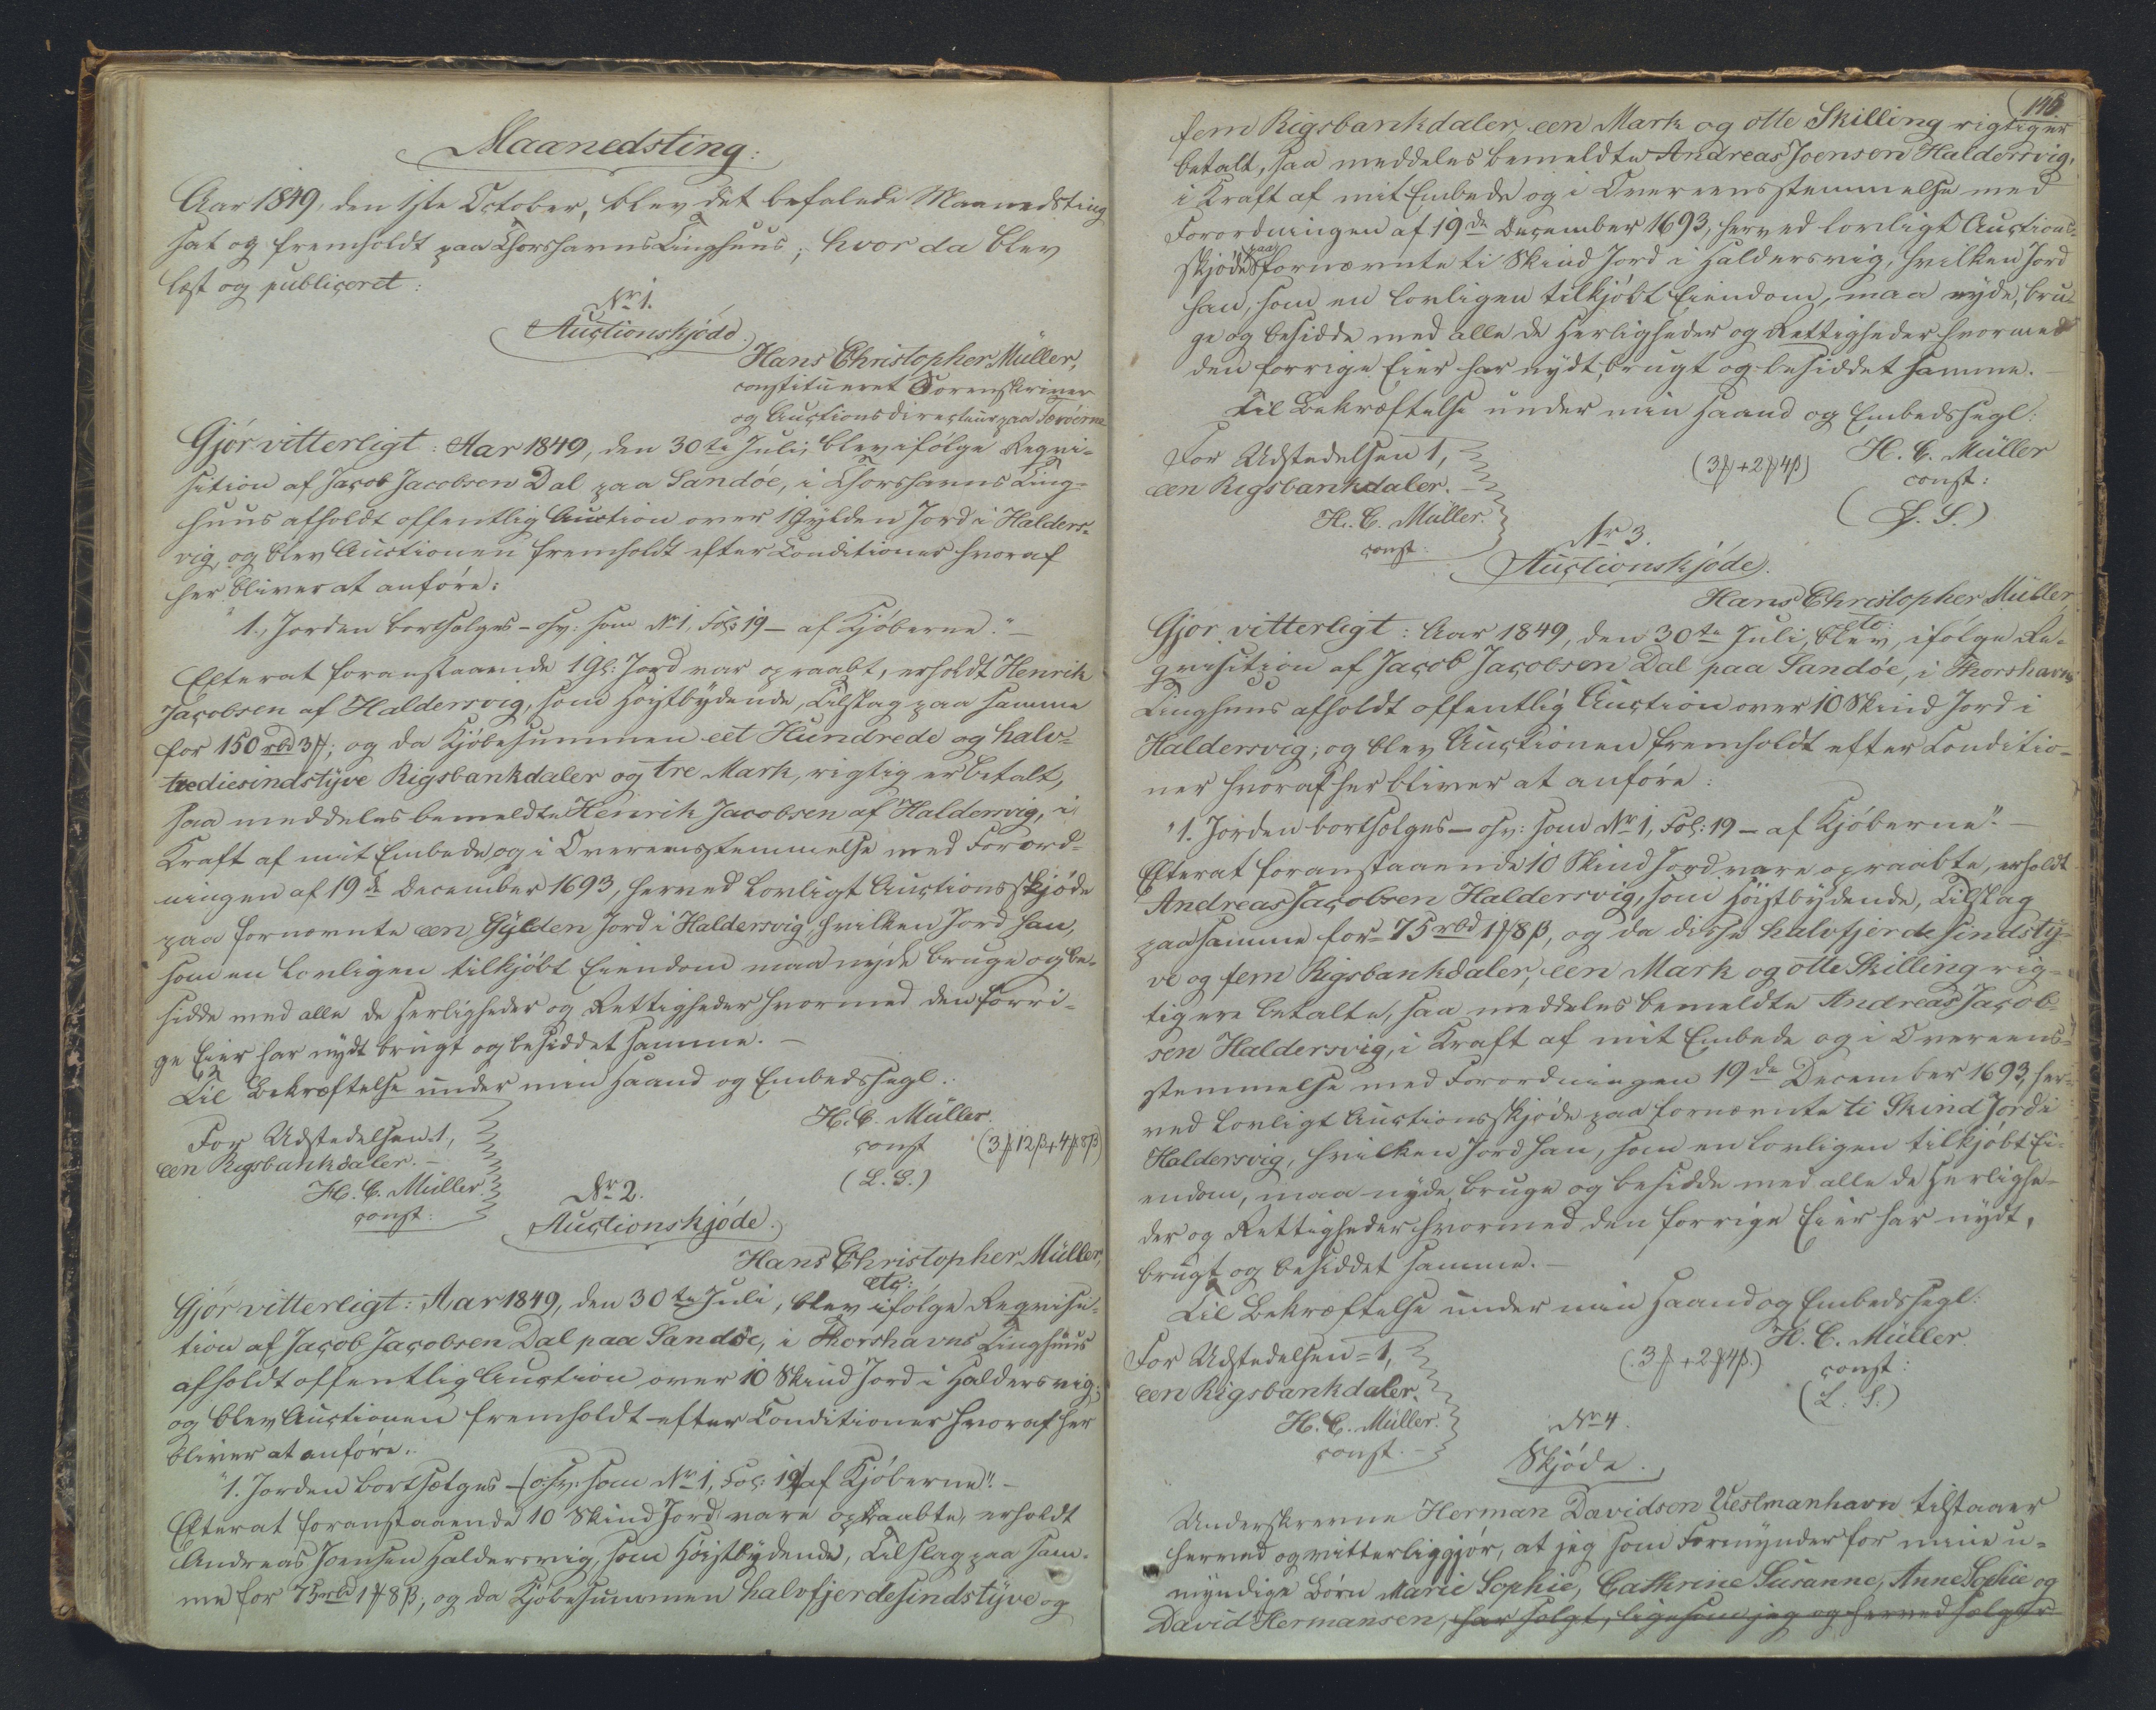 Maanedsting:
Aar 1849, den 1ste October, blev det befalede Maanedsting
sat og fremholdt paa Thorshavns Tinghuus; hvor da blev
læst og publiceret:
Nr 1.
Auctionskjöde.
Hans Christopher Müller,
constitueret Sorenskriver
og Auctionsdirecteur paa Færöerne
Gjör vitterligt: Aar 1849, den 30te Juli, blev ifölge Reqvi-
sition af Jacob Jacobsen Dal paa Sandöe, i Thorshavns Ting-
huus afholdt offentlig Auction over 1 Gylden Jord i Halders-
vig, og blev Auctionen fremholdt efter Conditioner hvoraf
her bliver at anföre:
"1., Jorden bortsælges - osv: som Nr 1, Fol: 19 - af Kjöberne." -
Efterat foranstaaende 1 Gl: Jord var opraabt, erholdt Henrik
Jacobsen af Haldersvig, som Höistbydende, Tilslag paa samme
for 150 rbd 3 ₰; og da Kjöbesummen eet Hundrede og halv-
trediesindstyve Rigsbankdaler og tre Mark, rigtig er betalt,
saa meddeles bemeldte Henrik Jacobsen af Haldersvig, i
Kraft af mit Embede, og i Overeensstemmelse med Forord-
ningen af 19de December 1693, herved lovligt Auctionsskjöde
paa fornævnte een Gylden Jord i Haldersvig, hvilken Jord han,
som en lovligen tilkjöbt Eiendom maa nyde bruge og be-
sidde med alle de Herligheder og Rettigheder hvormed den forri-
ge Eier har nydt brugt og besiddet samme. -
Til Bekræftelse under min Haand og Embedssegl:
H. C. Müller.
const
(L. S.)
(3 ₰ 12 β + 4 ₰ 8 β)
For Udstedelsen 1,
een Rigsbankdaler. -
H. C. Müller
const:
Nr 2.
Auctionskjöde.
Hans Christopher Müller,
etc:
Gjör vitterligt: Aar 1849, den 30te Juli, blev ifölge Reqvisi-
tion af Jacob Jacobsen Dal paa Sandöe, i Thorshavns Tinghuus
afholdt offentlig Auction over 10 Skind Jord i Haldersvig;
og blev Auctionen fremholdt efter Conditioner hvoraf her
bliver at anföre.
"1. Jorden bortsælges - (o: sv: som Nr 1, Fol: 19) af Kjöberne". -
Efterat foranstaaende 10 Skind Jord vare opraabte, erholdt
Andreas Joensen Haldersvig, som Höistbydende, Tilslag paa sam-
me for 75 rbd 1 ₰ 8 β, og da Kjöbesummen halvfjerdesindstyve og
146.
fem Rigsbankdaler, een Mark og otte Skilling rigtig er
betalt, saa meddeles bemeldte Andreas Joensen Haldersvig,
i Kraft af mit Embede og i Overeensstemmelse med
Forordningen af 19de December 1693, herved lovligt Auctions-
skjöde paa fornævnte ti Skind Jord i Haldersvig, hvilken Jord
han, som en lovligen tilkjöbt Eiendom, maa nyde, bru-
ge og besidde med alle de Herligheder og Rettigheder hvormed
den forrige Eier har nydt, brugt og besiddet samme. -
Til Bekræftelse under min Haand og Embedssegl:
H. C. Müller
const:
(L. S.)
(3 ₰ + 2 ₰ 4 β)
For Udstedelsen 1,
een Rigsbankdaler. -
H. C. Müller.
const:
Nr 3.
Auctionskjöde.
Hans Christopher Müller,
etc:
Gjör vitterligt: Aar 1849, den 30te Juli, blev, ifölge Re-
qvisition af Jacob Jacobsen Dal paa Sandöe, i Thorshavns
Tinghuus afholdt offentlig Auction over 10 Skind Jord i
Haldersvig; og blev Auctionen fremholdt efter Conditio-
ner hvoraf her bliver at anföre:
"1. Jorden bortsælges - osv: som Nr 1, Fol: 19 - af Kjöberne" -
Efterat foranstaaende 10 Skind Jord vare opraabte, erholdt
Andreas Jacobsen Haldersvig, som Höistbydende, Tilslag
paa samme for 75 rbd 1 ₰ 8 β, og da disse halvfjerdesindsty-
ve og fem Rigsbankdaler, een Mark og otte Skilling rig-
tig ere betalte, saa meddeles bemeldte Andreas Jacob-
sen Haldersvig, i Kraft af mit Embede og i Overeens-
stemmelse med Forordningen 19de December 1693, her-
ved lovligt Auctionsskjöde paa fornævnte ti Skind Jord i
Haldersvig, hvilken Jord han, som en lovligen tilkjöbt Ei-
endom, maa nyde, bruge og besidde med alle de Herlighe-
der og Rettigheder hvormed den forrige Eier har nydt,
brugt og besiddet samme. -
Til Bekræftelse under min Haand og Embedssegl:
H. C. Müller.
const:
(L. S.)
(3 ₰ + 2 ₰ 4 β.)
For Udstedelsen = 1,
een Rigsbankdaler.
H. C. Müller.
const. -
Nr 4.
Skjöde.
Underskrevne Herman Davidsen Vestmanhavn tilstaaer
herved og vitterliggjör, at jeg som Formynder for mine u-
myndige Börn Marie Sophie, Cathrine Susanne, Anne Sophie og
David Hermansen, har solgt, ligesom jeg og herved sælger